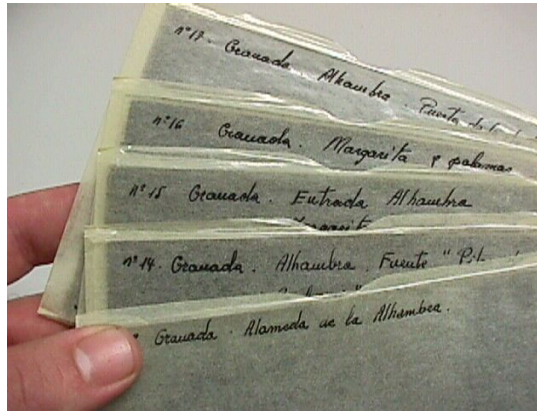 nº 17. Granada. Alhambra. Puerta de la
nº 16 Granada. Margarita y palomas
nº 15 Granada. Entrada Alhambra
Margarita
nº 14. Granada. Alhambra. Fuente "
Granada. Alameda de la Alhambra.